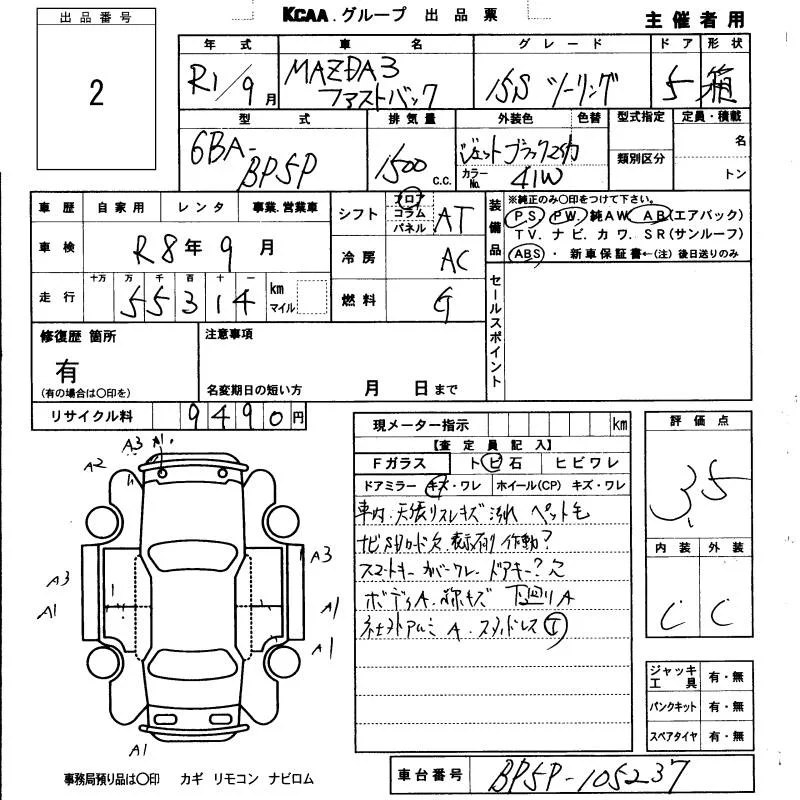 KCAA.グループ 出品票
主催者用
出品番号
2
年式 車名 グレード ドア 形状
R1/9月 MAZDA3 ファストバック 15S ツーリング 5 箱
型式 排気量 外装色 色替 型式指定 定員・積載
6BA-BP5P 1500 c.c. ジェットブラック カラーNo. 41W 類別区分 名 トン
車歴 自家用 レンタ 事業.営業車
シフト フロア コラム パネル AT
装備品 ※純正のみ〇印をつけて下さい。
PS PW. 純AW AB(エアバック)
TV.ナビ.カワ.SR(サンルーフ)
ABS・新車保証書←(注)後日送りのみ
車検 R8年9月
冷房 AC
走行 十万 万 千 百 十 一
55314 km マイル
燃料 G
セールスポイント
修復歴 箇所
有
(有の場合は〇印を)
注意事項
名変期日の短い方 月 日まで
リサイクル料 9490円
現メーター指示 km
【査定員記入】
Fガラス トビ石 ヒビワレ
ドアミラー キズ・ワレ ホイール(CP) キズ・ワレ
車内.天張りスレキズ 汚れ ペット毛
ナビSDカード欠. 作動?
スマートキーカバーワレ.ドアキー?欠
ボディA. キズ 下廻りA
アルミ A.スタッドレス
評価点
3.5
内装 外装
C C
A3 A1.
A2
A3
A1
A3
A1
A1
A1
ジャッキ工具 有・無
パンクキット 有・無
スペアタイヤ 有・無
事務局預り品は〇印 カギ リモコン ナビロム
車台番号 BP5P-105237